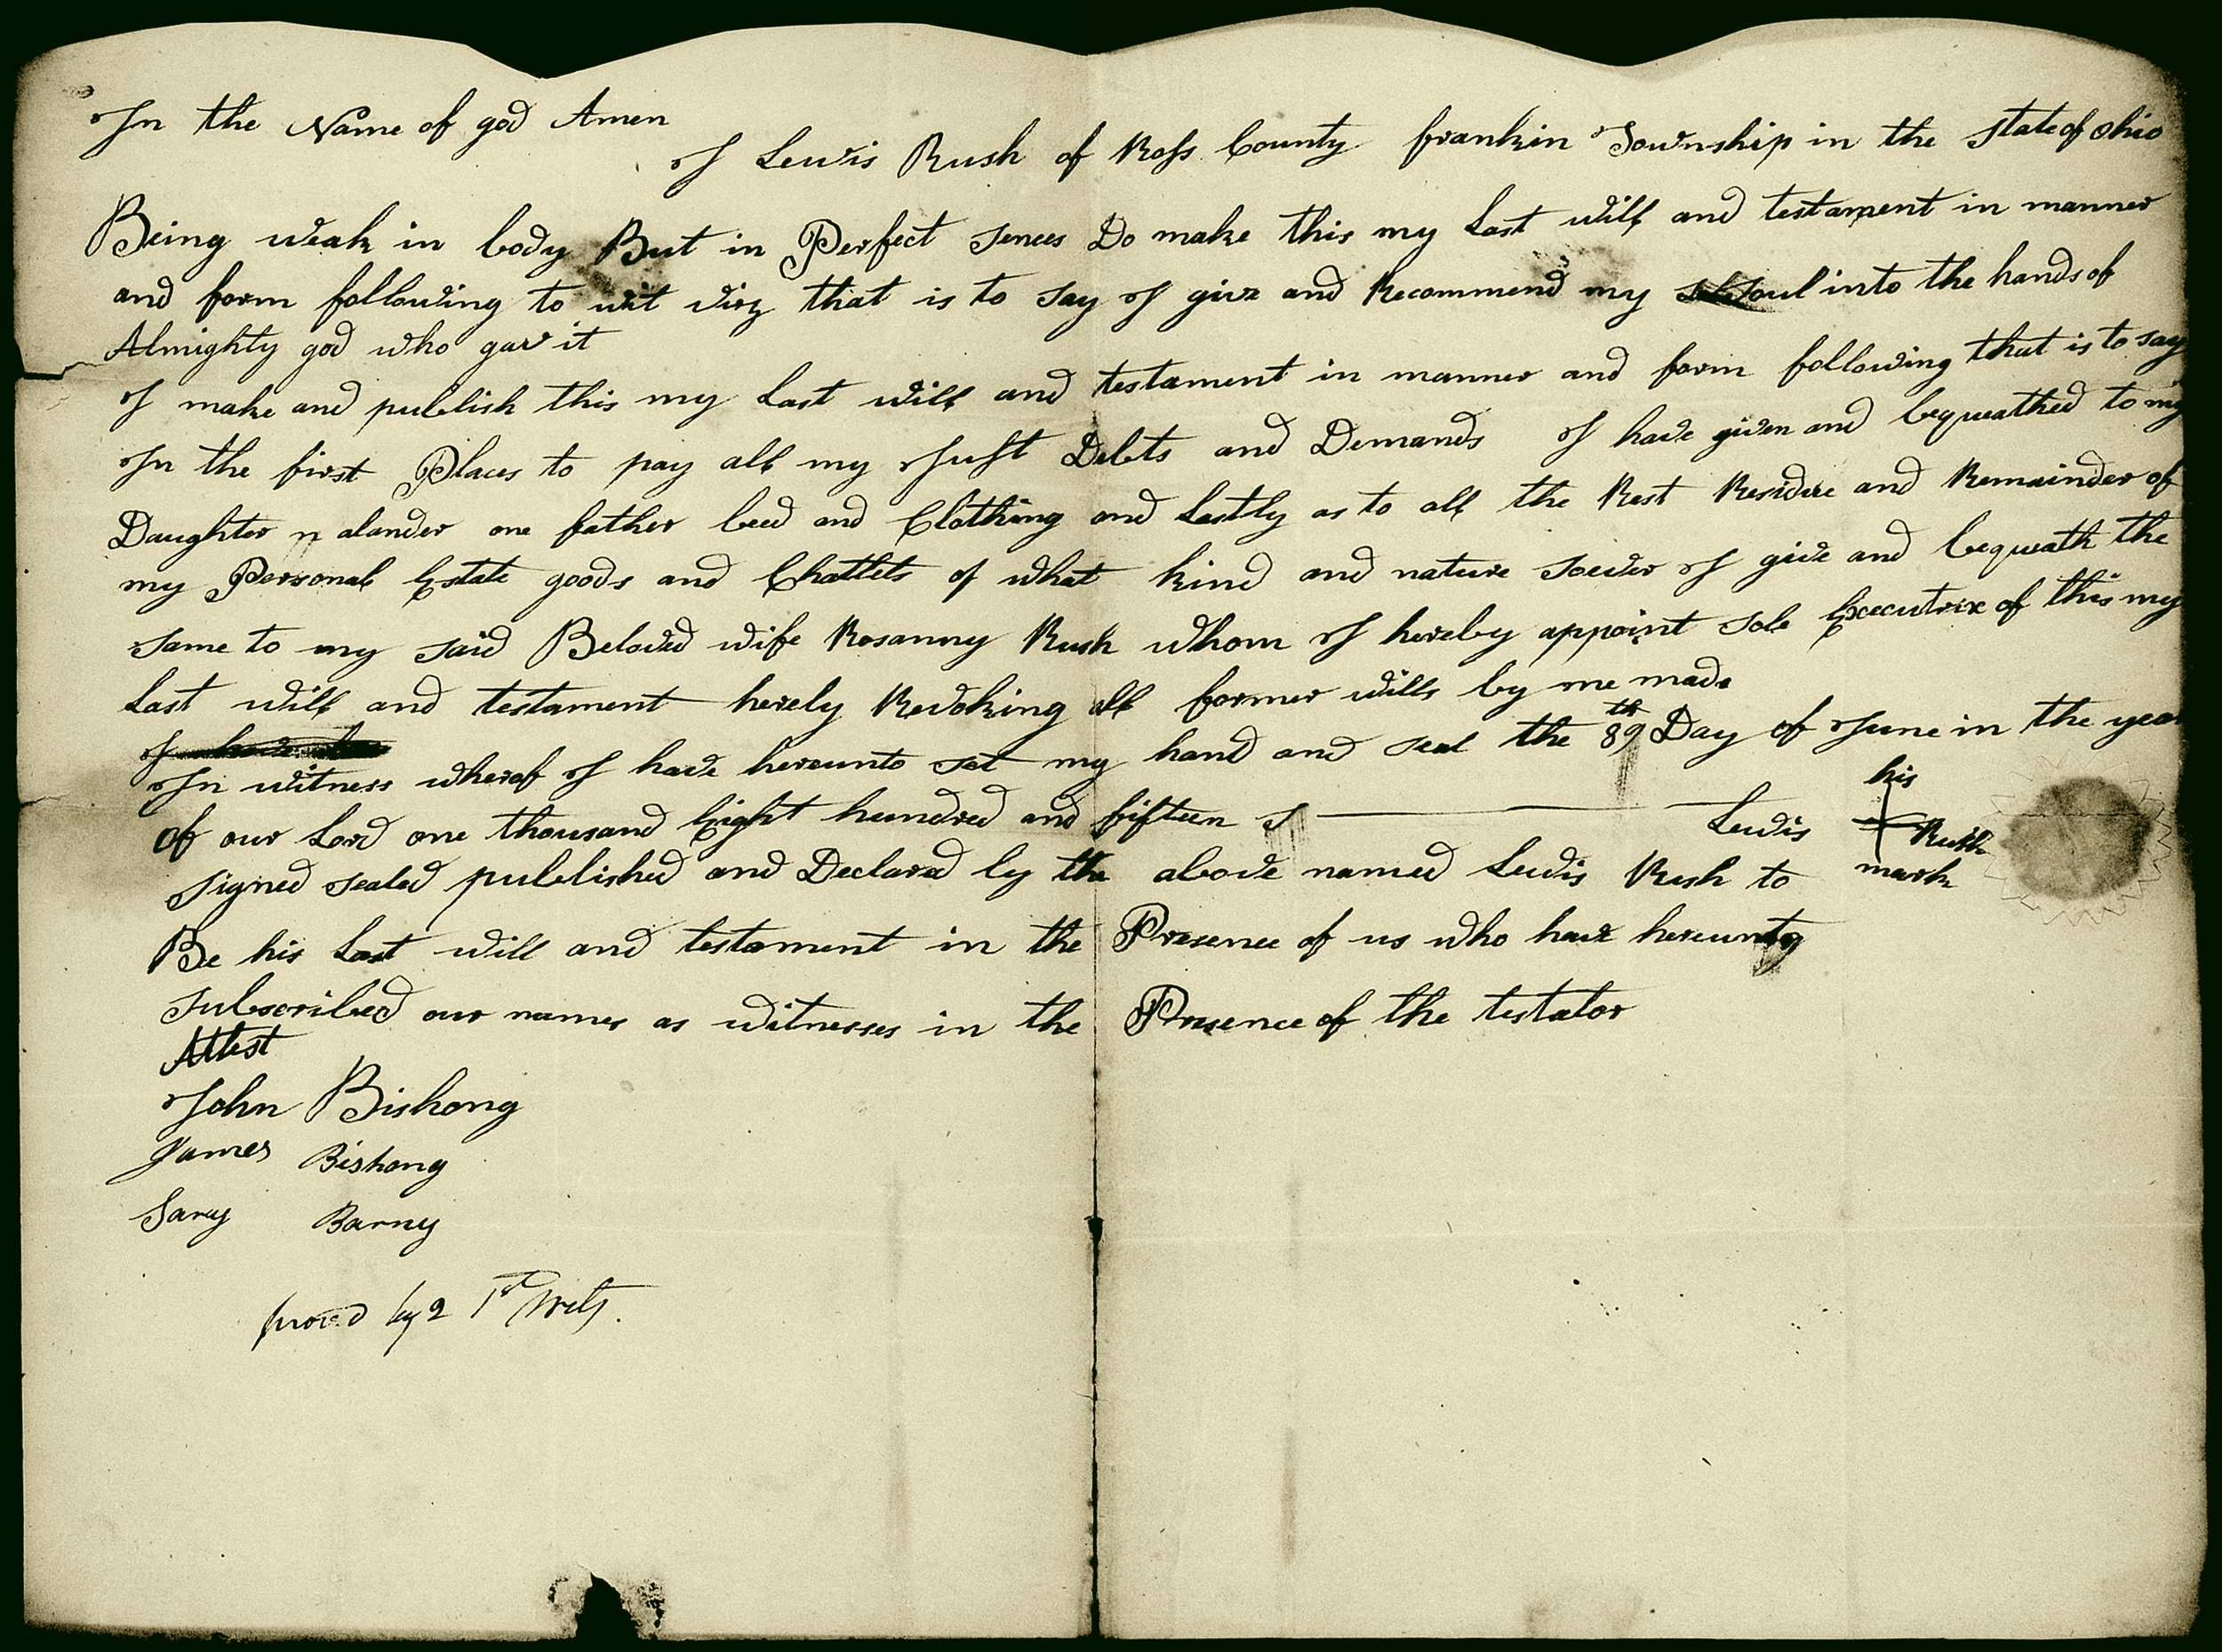 In the Name of god Amen
I Lewis Rush of Ross County frankin Township in the state of ohio
Being weak in body But in Perfect sences Do make this my Last will and testament in manner
and form following to wit viz that is to say I give and Recommend my soul into the hands of
Almighty god who gave it
I make and publish this my Last will and testament in manner and form following that is to say
In the first Places to pay all my Just Debts and Demands I have given and bequeathed to my
Daughter alander one father beed and Clothing and Lastly as to all the Rest Residue and Remainder of
my Personal Estate goods and Chattlets of what kind and nature soever I give and bequeath the
same to my said Beloved wife Rosanny Rush whom I hereby appoint sole Executrix of this my
Last will and testament herely Revoking all former wills by me made
I
In witness wherof I have hereunto set my hand and seal the 89th Day of June in the year
of our Lord one thousand Eight hundred and fifteen
Lewis his Rush mark
signed sealed published and Declared by the above named Lewis Rush to
Be his Last will and testament in the Presence of us who have hereunto
subscribed our names as witnesses in the Presence of the testator
Attest
John Bishong
James Bishong
Sary Barny
proved by 2 1st Wits.